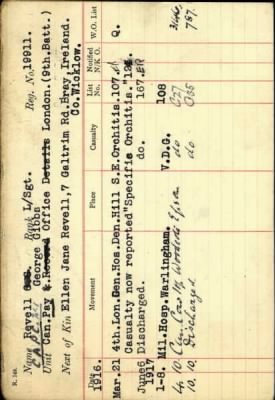 R. 149.
Name Revell Rank L/Sgt. Reg. No. 19911.
George Gibbs
Unit Can. Pay & Record Office London. (9th.Batt.)
Next of Kin Ellen Jane Revell, 7 Galtrim Rd. Bray, Ireland.
Co. Wicklow.
Date Movement Place Casualty List No. Notified N/K O. W.O. List
1916.
Mar.21 4th.Lon.Gen.Hos.Den.Hill S.E. Orchitis. 107. Q.
Casualty now reported "Specific Orchitis."
June 6 Discharged. do. 167.
1917
1-8. Mil.Hosp.Warlingham. V.D.G. 108
4. 10. do C27
10. 10. Discharged do O35 787.